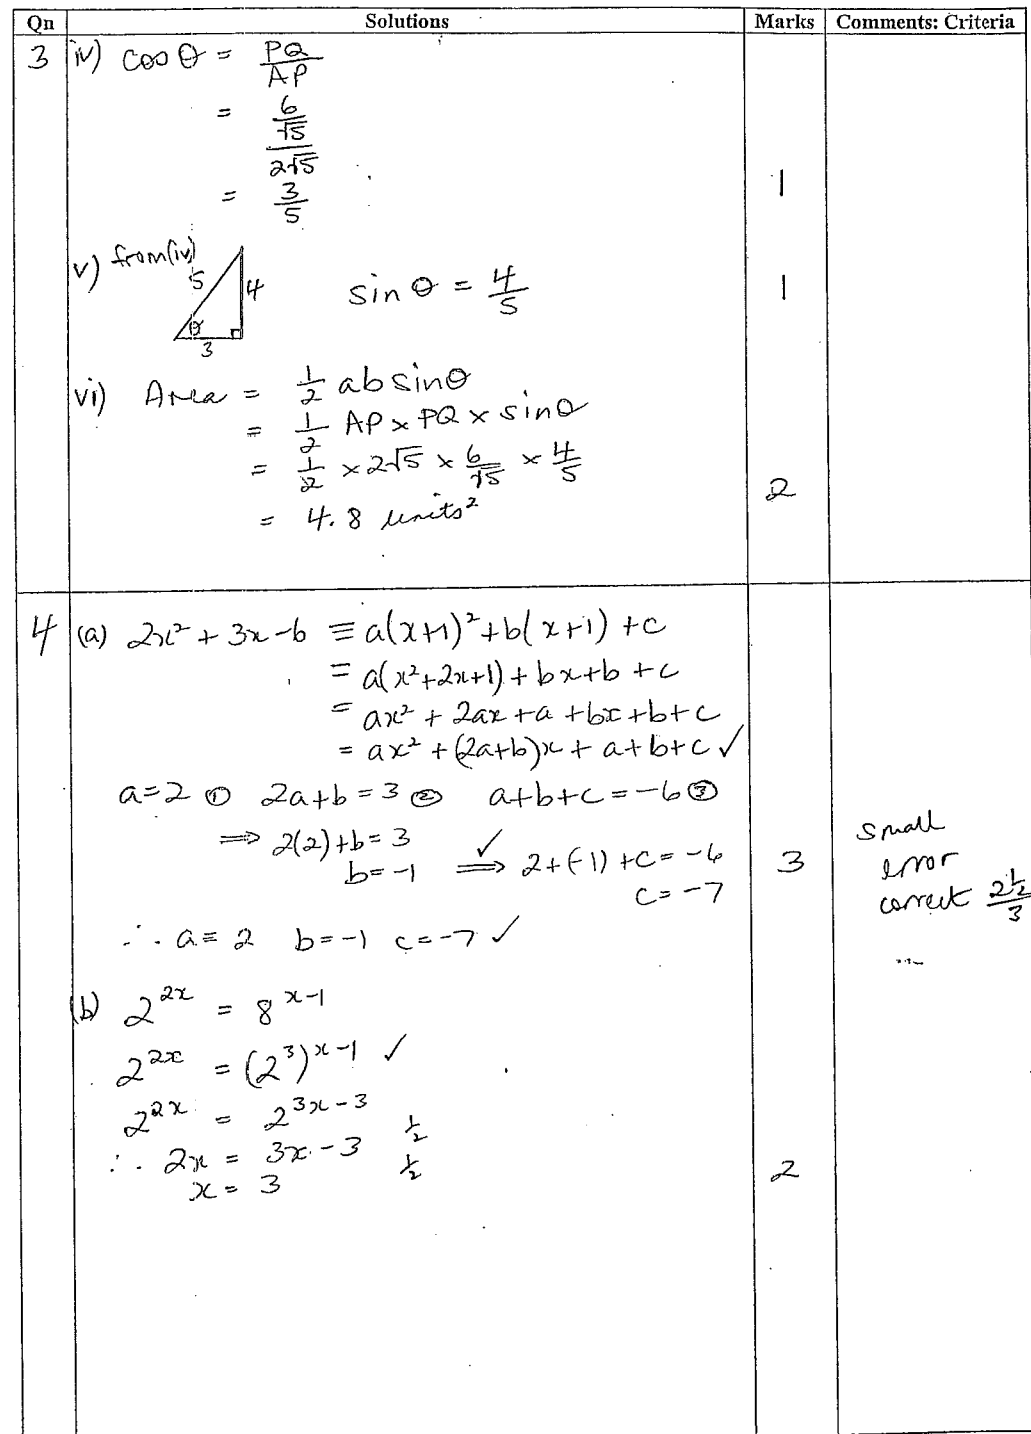 Qn Solutions Marks Comments: Criteria
3 iv) cos θ = PQ/AP
= (6/√5)/(2√5)
= 3/5 1
v) from (iv)
5 4 θ 3 sin θ = 4/5 1
vi) Area = 1/2 ab sin θ
= 1/2 AP × PQ × sin θ
= 1/2 × 2√5 × 6/√5 × 4/5
= 4.8 units² 2
4 (a) 2x² + 3x - 6 ≡ a(x+1)² + b(x+1) + c
= a(x²+2x+1) + bx+b + c
= ax² + 2ax + a + bx + b + c
= ax² + (2a+b)x + a+b+c ✓
a=2 ① 2a+b=3 ② a+b+c=-6 ③
⇒ 2(2)+b=3
b=-1 ✓ ⇒ 2+(-1)+c=-6 3
c=-7
small
error
correct 2½/3
∴ a=2 b=-1 c=-7 ✓
...
(b) 2^{2x} = 8^{x-1}
2^{2x} = (2³)^{x-1} ✓
2^{2x} = 2^{3x-3}
∴ 2x = 3x-3 ½
x = 3 ½ 2